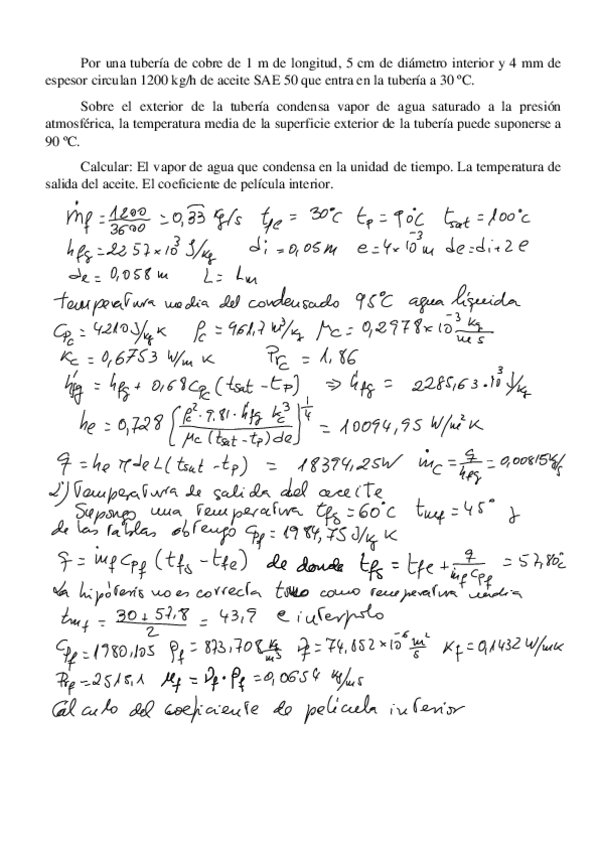 Por una tubería de cobre de 1 m de longitud, 5 cm de diámetro interior y 4 mm de
espesor circulan 1200 kg/h de aceite SAE 50 que entra en la tubería a 30 ºC.
Sobre el exterior de la tubería condensa vapor de agua saturado a la presión
atmosférica, la temperatura media de la superficie exterior de la tubería puede suponerse a
90 ºC.
Calcular: El vapor de agua que condensa en la unidad de tiempo. La temperatura de
salida del aceite. El coeficiente de película interior.
ṁf = 1200/3600 = 0,33 kg/s tfe = 30°C tp = 90°C tsat = 100°C
hfg = 2257×10³ J/kg di = 0,05 m e = 4×10⁻³ m de = di + 2e
de = 0,058 m L = Lm
temperatura media del condensado 95°C agua líquida
Cpc = 4210 J/kg K ρc = 961,7 m³/kg μc = 0,2978×10⁻³ kg/ms
Kc = 0,6753 W/m K Prc = 1,86
h'fg = hfg + 0,68 Cpc (tsat - tp) ⇒ h'fg = 2285,63·10³ J/kg
he = 0,728 [ρc²·9,81·h'fg kc³ / μc (tsat - tp) de]^1/4 = 10094,95 W/m² K
q = he π de L (tsat - tp) = 18394,25W ṁc = q/hfg = 0,00815 kg/s
2º) Temperatura de salida del aceite
Supongo una temperatura tfs = 60°C tmf = 45° y
de las tablas obtengo Cpf = 1984,75 J/kg K
q = ṁf Cpf (tfs - tfe) de donde tfs = tfe + q/ṁf Cpf = 57,80°C
La hipótesis no es correcta tomo como temperatura media
tmf = 30 + 57,8 / 2 = 43,9 e interpolo
Cpf = 1980,105 ρf = 873,708 kg/m³ νf = 74,852×10⁻⁶ m²/s Kf = 0,1432 W/mK
Prf = 2515,1 μf = νf·ρf = 0,0654 kg/ms
Cálculo del coeficiente de película interior